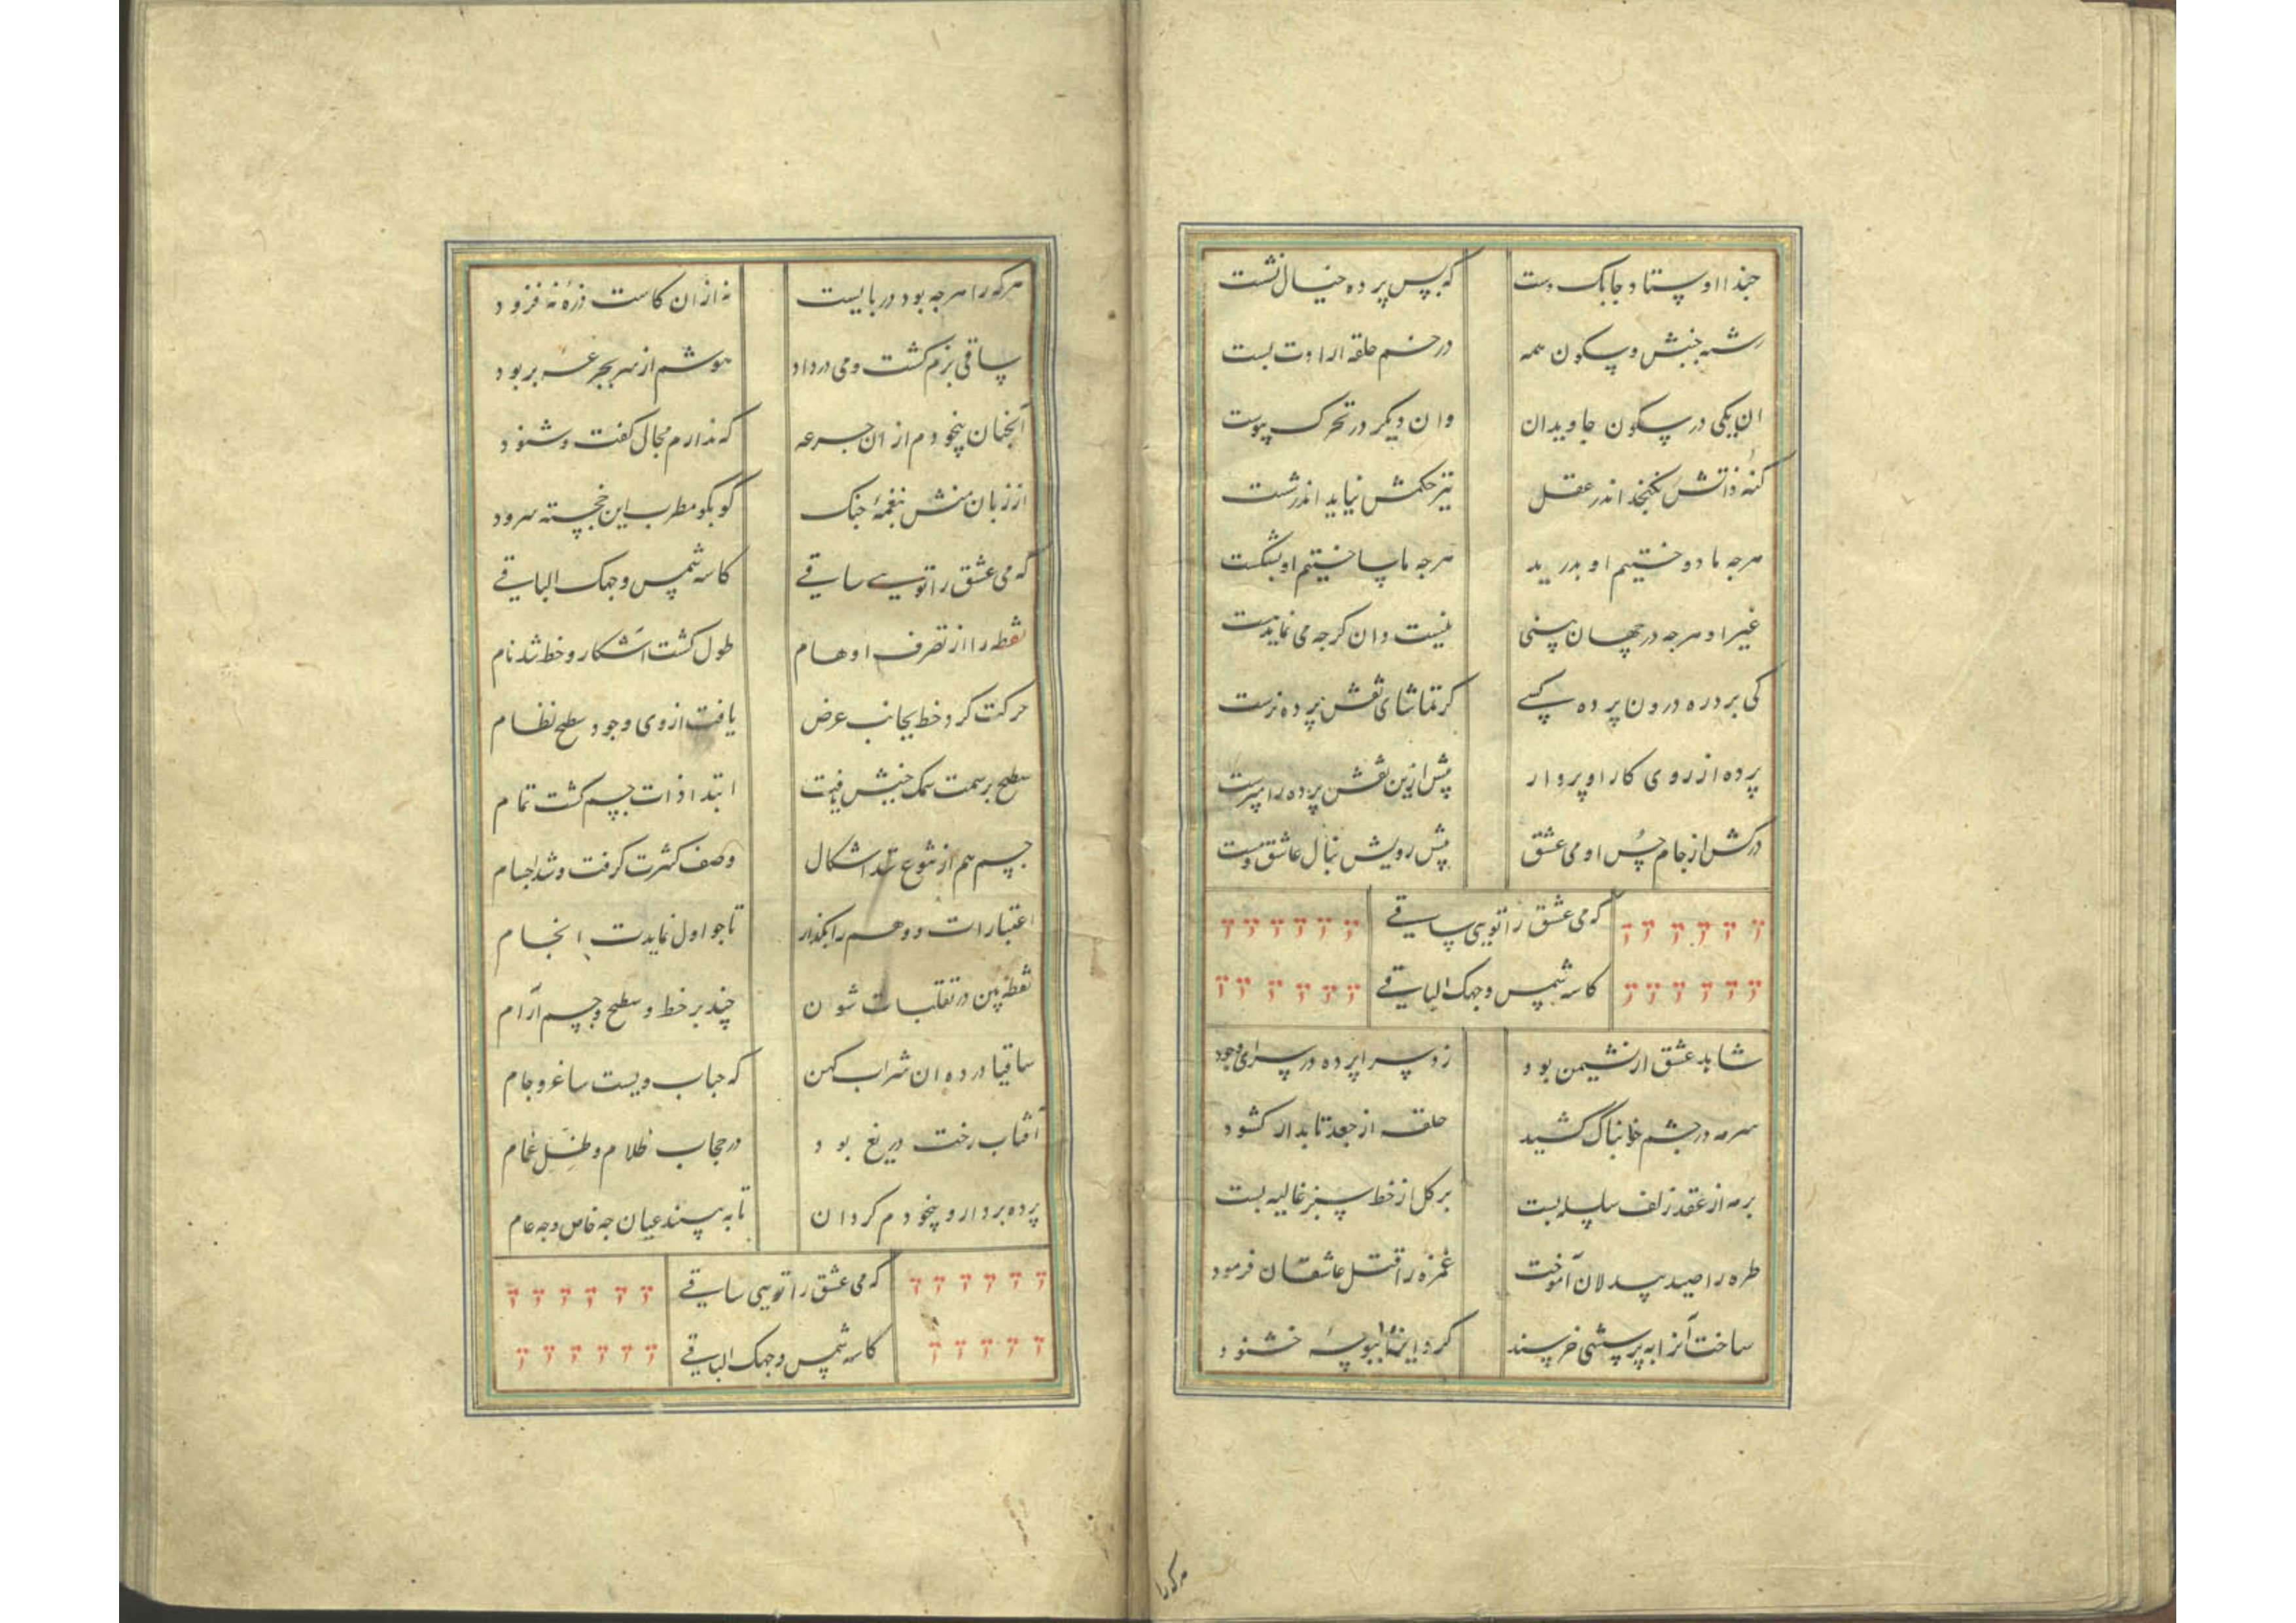 حبذا اوستاد چابک دست که پس پرده خیال نشست
رشته جنبش و سکون همه در خم حلقه ارادت بست
ان یکی در سکون جاویدان وان دیگر در تحرک پیوست
کنه ذاتش نکنجد اندر عقل تیر حکمش نیاید اندر شست
هرچه ما دوختیم او بدرید هرچه ما ساختیم او بشکست
غیر او هرچه در جهان بینی نیست وان کرچه می نماید هست
کی برد ره درون پرده کسے کز تماشای نقش پرده نرست
پرده از روی کار او بردار پیش ازین نقش پرده را مپرست
درکش از جام حسن او می عشق پیش رویش بنال عاشق و مست
که می عشق را تویی ساقے
کاسه شمس وجهک الباقے
شاهد عشق از نشیمن بود زد سراپرده در سرای وجود
سرمه در چشم خابناک کشید حلقه از جعد تابدار کشود
بر مه از عقد زلف سلسله بست بر کل از خط سبز غالیه سود
طره را صید بیدلان آموخت غمزه را قتل عاشقان فرمود
ساخت آنرا به پرسشی خرسند کرد اینرا ببوسهٔ خشنود
هرکه را هرچه بود دربایست نه ازان کاست ذرهٔ نه فزود
ساقی بزم کشت و می در داد هوشم از سر بجرعه بربود
آنچنان بیخودم از ان جرعه که ندارم مجال کفت و شنود
از زبان منش بنغمهٔ چنک کو بکو مطرب این خجسته سرود
که می عشق را تویے ساقے کاسه شمس وجهک الباقے
نقطه را از تصرف اوهام طول کشت آشکار و خط شد نام
حرکت کرد خط بجانب عرض یافت از وی وجود سطح نظام
سطح بر سمت سمک جنبش یافت ابتدا ذات جسم کشت تمام
جسم هم از تنوع اشکال وصف کثرت کرفت و شد اجسام
اعتبارات و وهم را بکذار تا چو اول نمایدت انجام
نقطه بین در تقلبات شوان چند بر خط و سطح و جسم آرام
ساقیا در ده ان شراب کهن که حباب ویست ساغر و جام
آفتاب رخت دریغ بود در حجاب ظلام و ظل غمام
پرده بردار و بیخودم کردان تا ببینند عیان چه خاص و چه عام
که می عشق را تویی ساقے
کاسه شمس وجهک الباقے
هرکه را